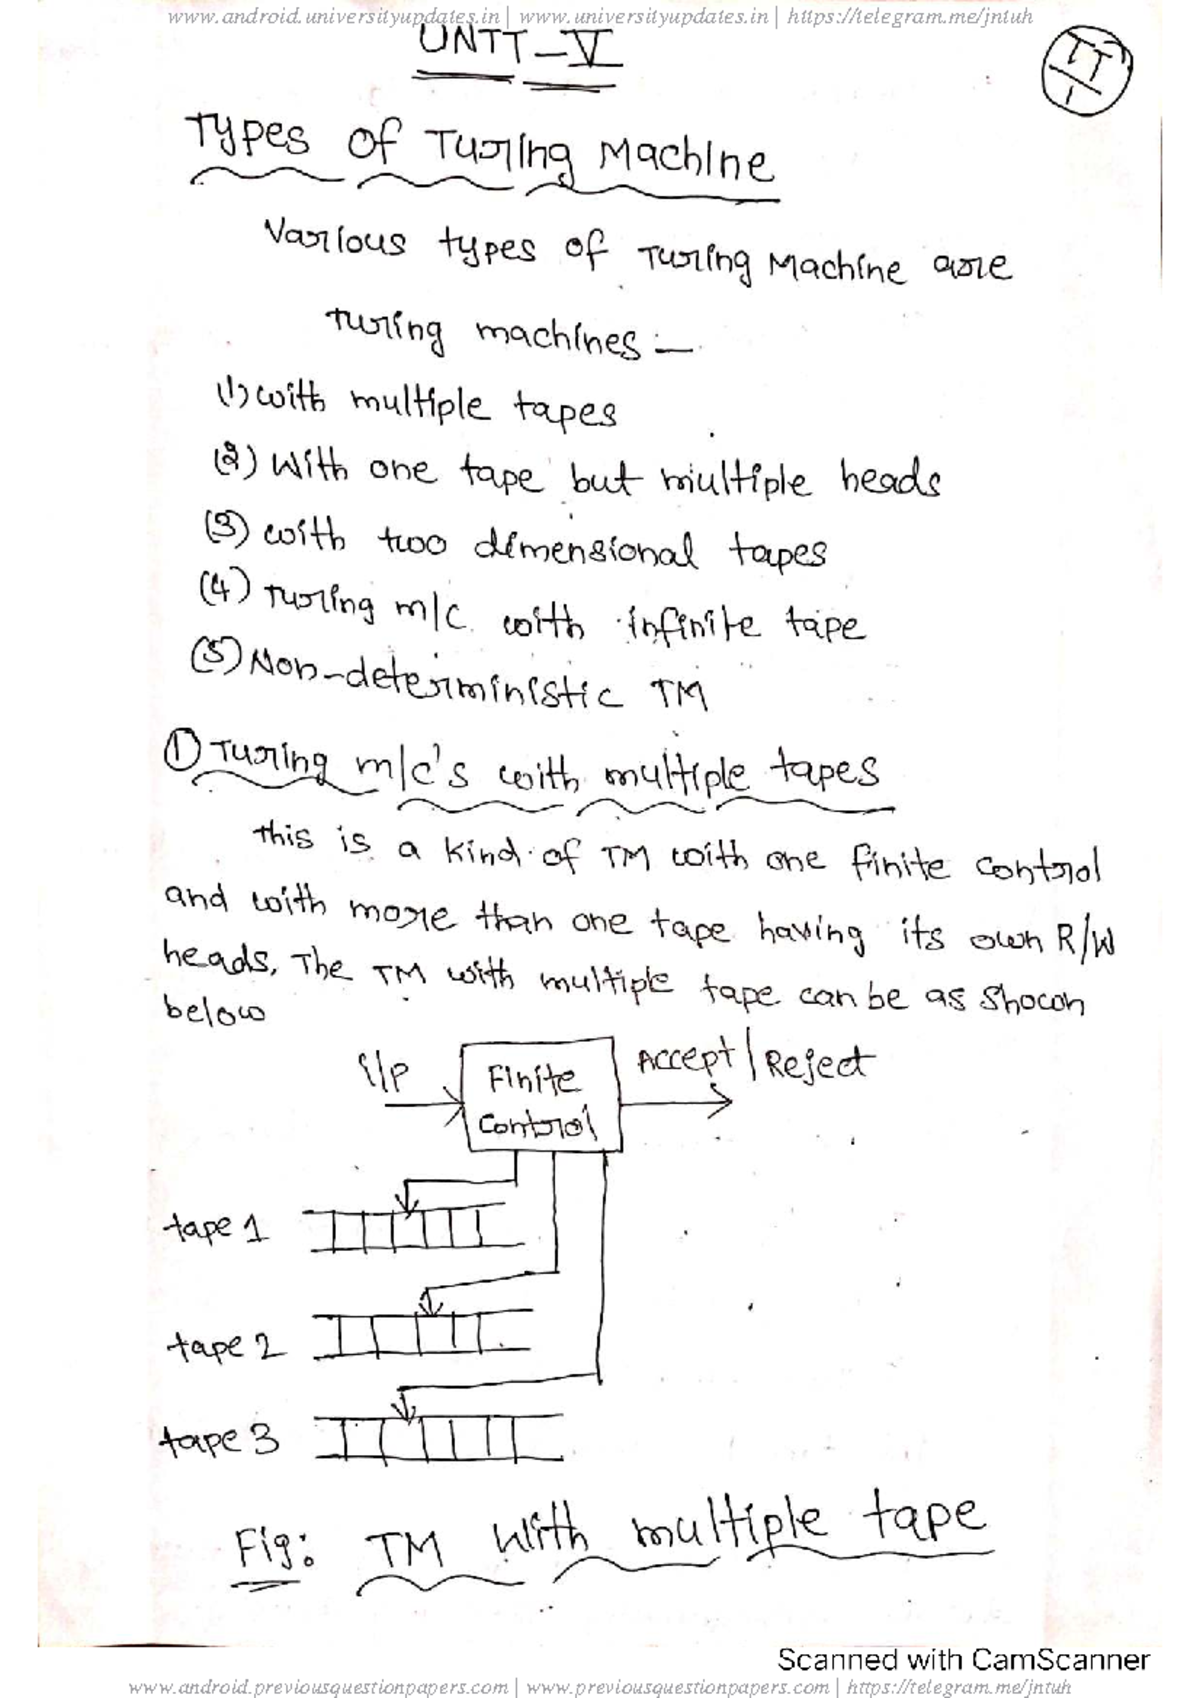 www.android.universityupdates.in | www.universityupdates.in | https://telegram.me/jntuh
UNIT-V
Types of Turing Machine
Various types of Turing Machine are
Turing machines:-
(1) with multiple tapes
(2) With one tape but multiple heads
(3) with two dimensional tapes
(4) Turing m/c with infinite tape
(5) Non-deterministic TM
① Turing m/c's with multiple tapes
This is a kind of TM with one finite control
and with more than one tape having its own R/W
heads, The TM with multiple tape can be as shown
below
i/p
Finite
Control
Accept/Reject
tape 1
tape 2
tape 3
Fig: TM with multiple tape
Scanned with CamScanner
www.android.previousquestionpapers.com | www.previousquestionpapers.com | https://telegram.me/jntuh